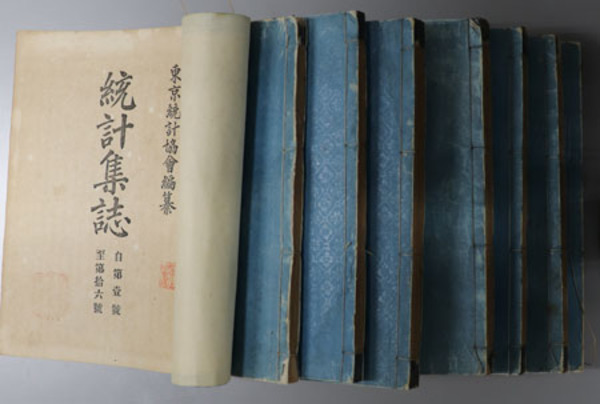 東京統計協會編纂
統計集誌
自第壹號
至第拾六號